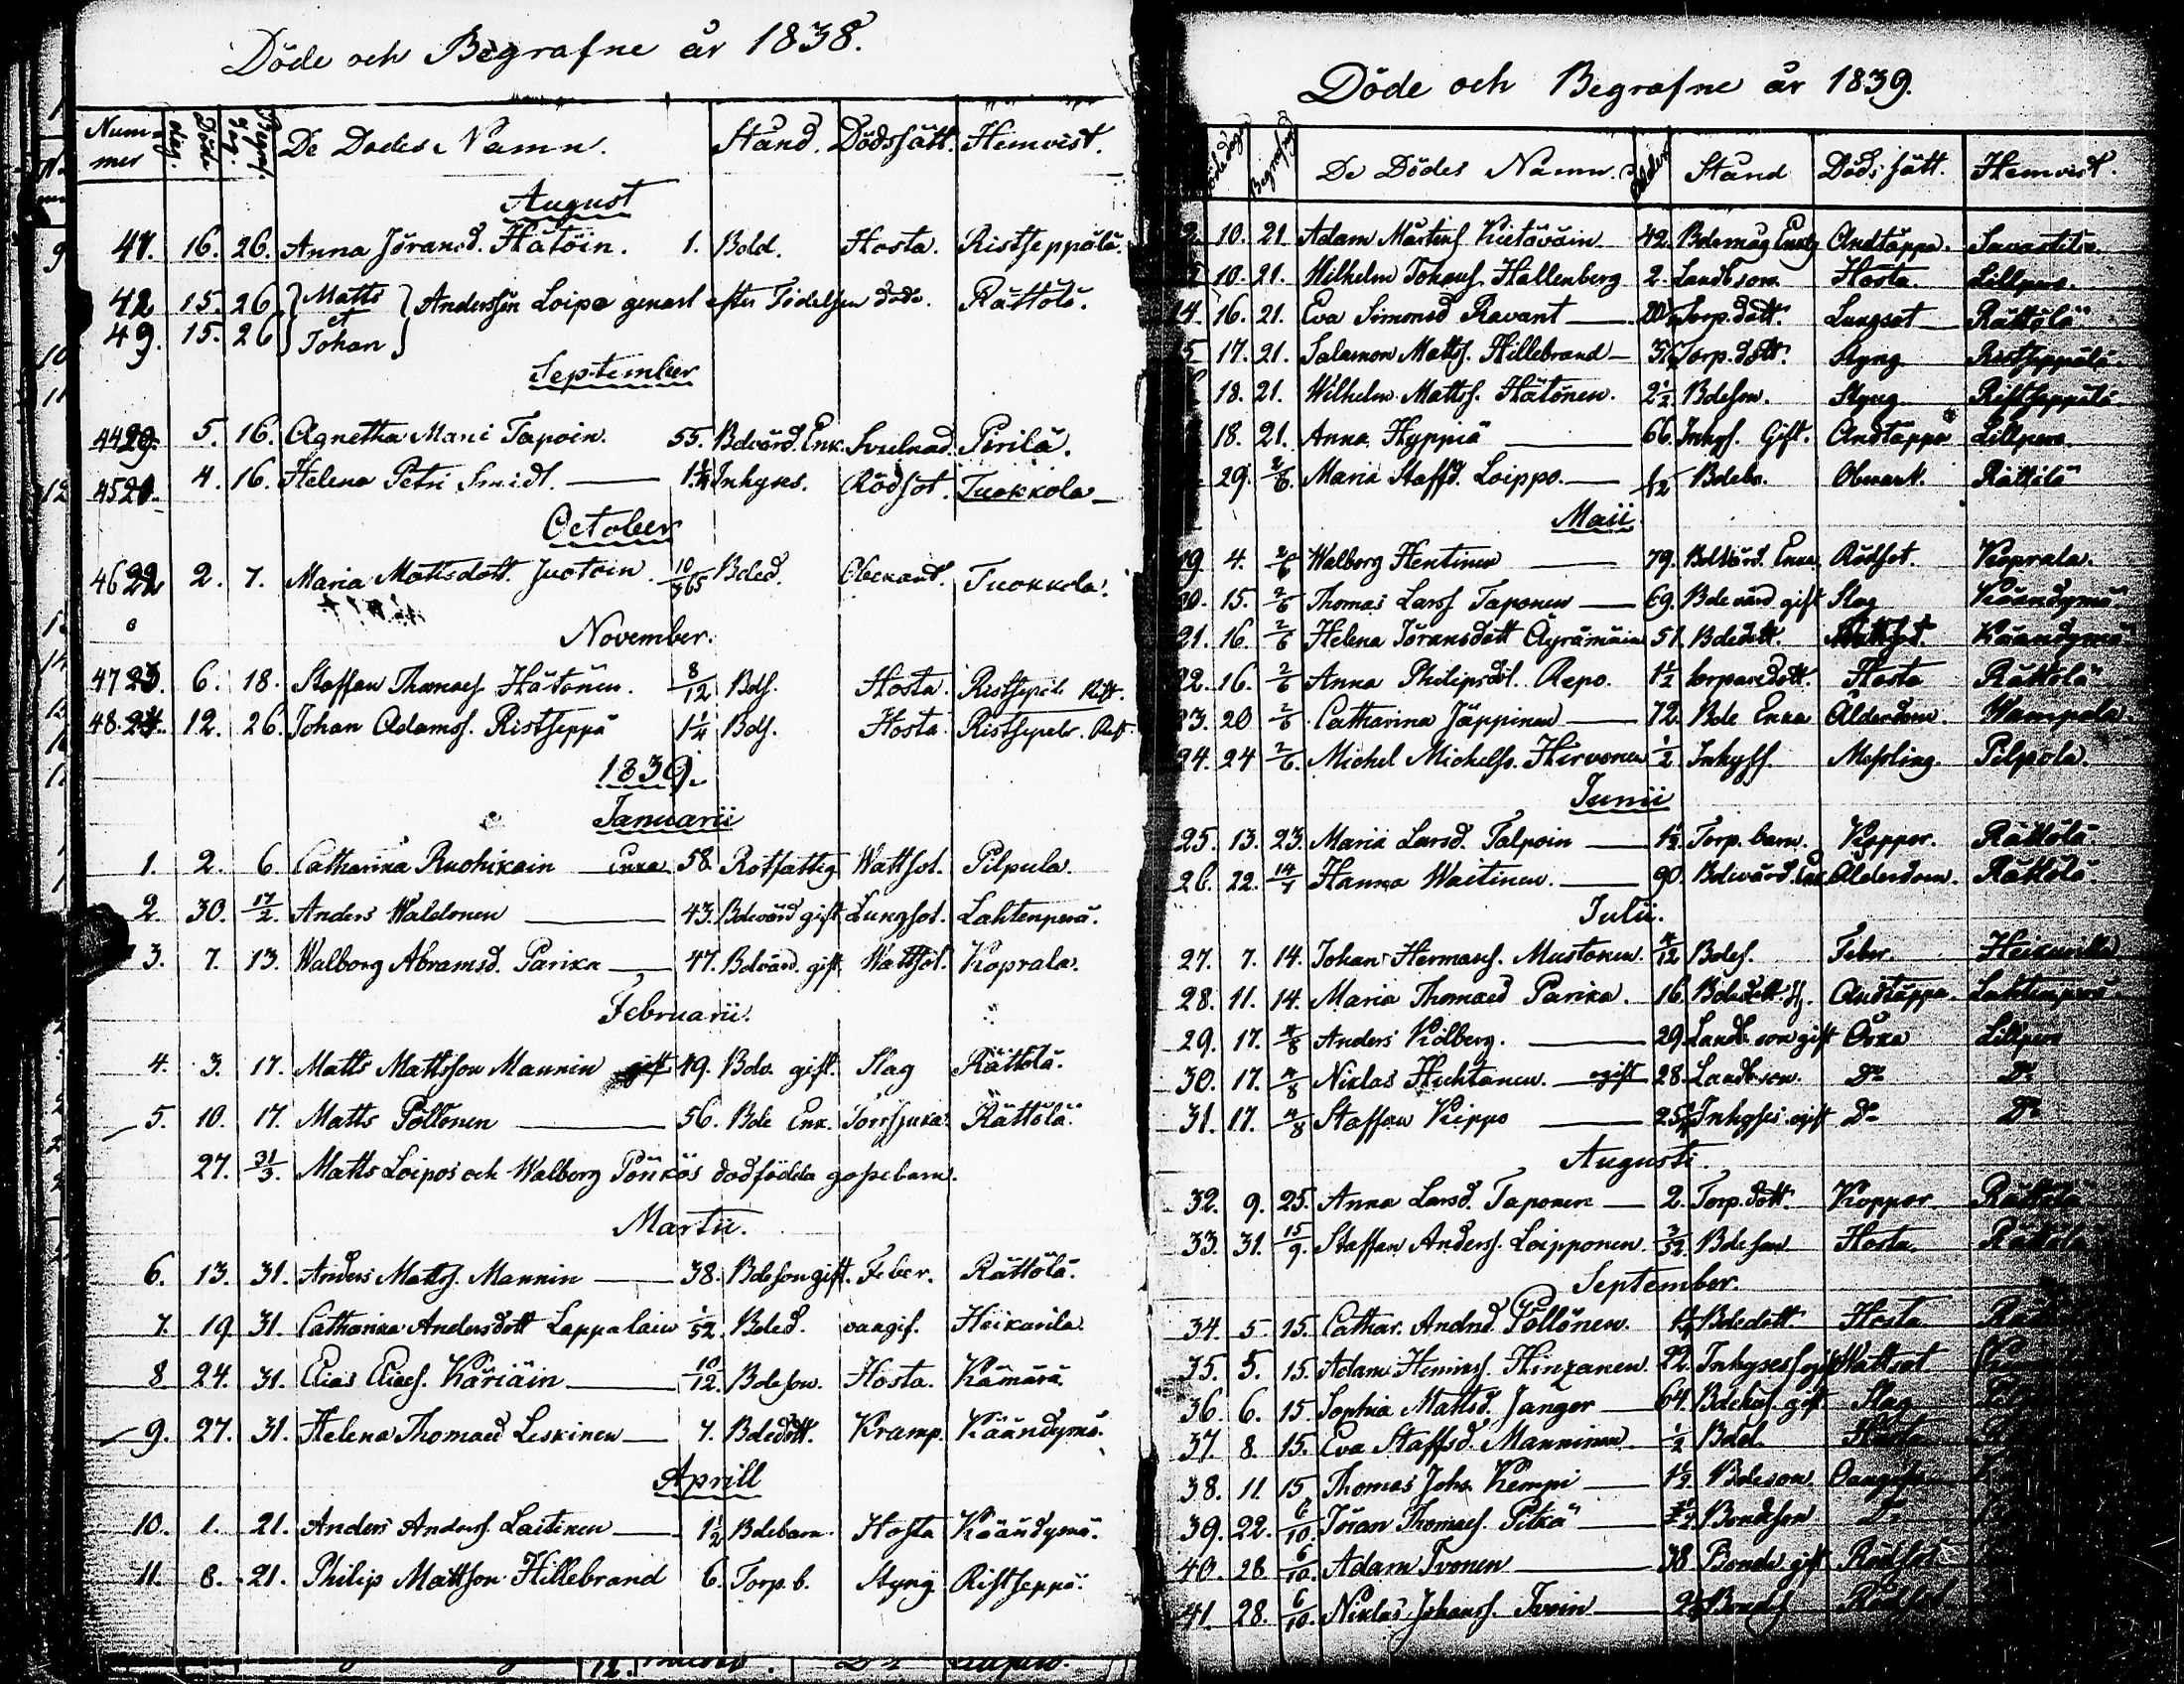 Döde och Begrafne år 1838.
Num=mer Döde dag. Begraf. dag. De Dödes Namn. Stånd. Dödssätt. Hemvist.
August
41. 16. 26. Anna Jöransd. Hätöin. 1. Bold. Hosta. Ristseppälä.
42 15. 26 Matts et Anderssön Loipo genast efter Födelsen döde. Rättölä.
49. 15. 26 Johan
September
4429. 5. 16. Agnetha Mani Tapoin. 55. Bdvärd. Enk. Svulnad. Pirilä.
4521. 4. 16. Helena Petri Smidt. — 1¼ Inhyses. Rödsot. Tuokkola
October
4622 2. 7. Maria Mattsdott. Juotoin 10/365 Bded. Obekand. Tuokkola.
November.
4723. 6. 18. Staffan Thomaes. Hätönen. 8/12 Bds. Hosta. Ristsepelä
48.24. 12. 26. Johan Adamss. Ristseppä 1¼ Bds. Hosta. Ristsepelä.
1839.
Januarii
1. 2. 6. Catharina Ruohikain Enka 58. Rotfattig Wattsot. Pilpula.
2. 30. 17/2. Anders Waldonen — 43. Bdevärd gift Lungsot. Lahtenperä.
3. 7. 13. Walborg Abramsd. Parika — 47. Bdvärd. gift. Wattsot. Koprala.
Februarii.
4. 3. 17. Matts Mattsson Mannin gift 49. Bdv. gift. Slag Rättölä.
5. 10. 17. Matts Pöllönen — 56. Bde Enk. Torrsjuka. Rättölä.
27. 31/3. Matts Loipos och Walborg Pönkös dödfödda gossebarn.
Martii.
6. 13. 31. Anders Matts. Mannin — 38. Bdeson gift. Feber. Rättölä.
7. 19. 31. Catharina Andersdott Lappalain 1/52. Bded. oangif. Heikurila.
8. 24. 31. Elias Eliaes. Käriäin — 10/12. Bdeson. Hosta. Kämärä.
9. 27. 31. Helena Thomaed Leskinen — 7. Bdedott. Kramp. Käändymä.
Aprill
10. 1. 21. Anders Anders. Laitinen — 1½ Bdebarn. Hosta Käändymä.
11. 8. 21. Philip Mattson Hillebrand 6. Torp. b. Styng Ristseppä.
Döde och Begrafne år 1839.
Dödedag Begrafn. De Dödes Namn. Ålder Stånd Döds sätt. Hemvist.
2. 10. 21. Adam Mårtens. Kietäväin 42. Bdemåg Andtäppa. Savastila.
10. 21. Wilhelm Johans. Hallenberg 2. Landb son Hosta. Lillpera.
14. 16. 21. Eva Simonsd Ravant — Torp. dott. Lungsot Rättölä
5 17. 21. Salamon Matts. Hillebrand — Torp. Styng Ristseppälä
18. 21. Wilhelm Matts. Hätönen. 2½ Bdeson. Styng Ristseppälä
18. 21. Anna Hyppiä — 66. Inhys. Gift. Andtäppa Lillpera.
29. 2/6. Maria Staffd. Loippo. — Bdebr. Obekant. Rättölä
Maii
19 4. 2/6 Walborg Hentinen — 79. Bdevärd. Enka Rödsot. Koprala.
20. 15. 2/6 Thomas Larss Taponen — 69. Bde värd gift Slag Käändymä
21. 16. 2/6 Helena Jöransdott Äyrämäin 51. Bdedott. Wattsot. Käändymä
22. 16. 2/6 Anna Philipsdot. Repo. 1½ torparedott. Hosta Rättölä
23. 20 2/6 Catharina Jäppinen — 72. Bde Enka Ålderdom. Wampola.
24. 24 2/6. Michel Michelss. Hirvonen ½ Inhyss. Messling. Pilpola.
Junii
25. 13. 23. Maria Larsd. Talpoin — 1½. Torp. barn. Koppor. Rättölä.
26. 22. 14/7 Hanna Waitinen. — 90. Bdevärd. Enk Ålderdom. Rättölä.
Julii.
27. 7. 14. Johan Hermans. Mustonen. 4/12 Bdes. Feber. Heikurila
28. 11. 14. Maria Thomaed Parika. 16. Bdedott. Andtäppa. Lahtenperä
29. 17. 4/8 Anders Kolberg. — 29. Landb. son gift Åska Lillpera
30. 17. 4/8 Niklas Huhtanen. — gift 28. Landb. son. Do Do
31. 17. 4/8 Staffan Kippo — 25½ Inhyses. gift Do Do
Augusti.
32. 9. 25. Anna Larsd. Taponen — 2. Torp. dott. Koppor Rättölä
33. 31. 15/9. Staffan Anders. Loipponen. 3/52 Bdeson Hosta. Rättölä
September.
34. 5 15. Cathar. Andrsd. Pöllönen. Bdedott. Hosta
35. 5. 15. Adam Henriks. Hinkanen. 22. Inhyses Wattsot
36. 6. 15. Sophia Mattsd. Janger — 64. Bdehus. gift. Slag
37. 8. 15. Eva Staffsd. Manninen ½ Bded. Hosta
38. 11. 15 Thomas Johs. Kempi — 1½. Bdeson. Oangifven
39. 22. 6/10. Jöran Thomaes. Pitkä — Bondeson Do
40. 28. 6/10. Adam Ivonen — 38 Bonde gift Rödsot
41. 28. 6/10. Niklas Johans. Ivoin — Bondes Rödsot